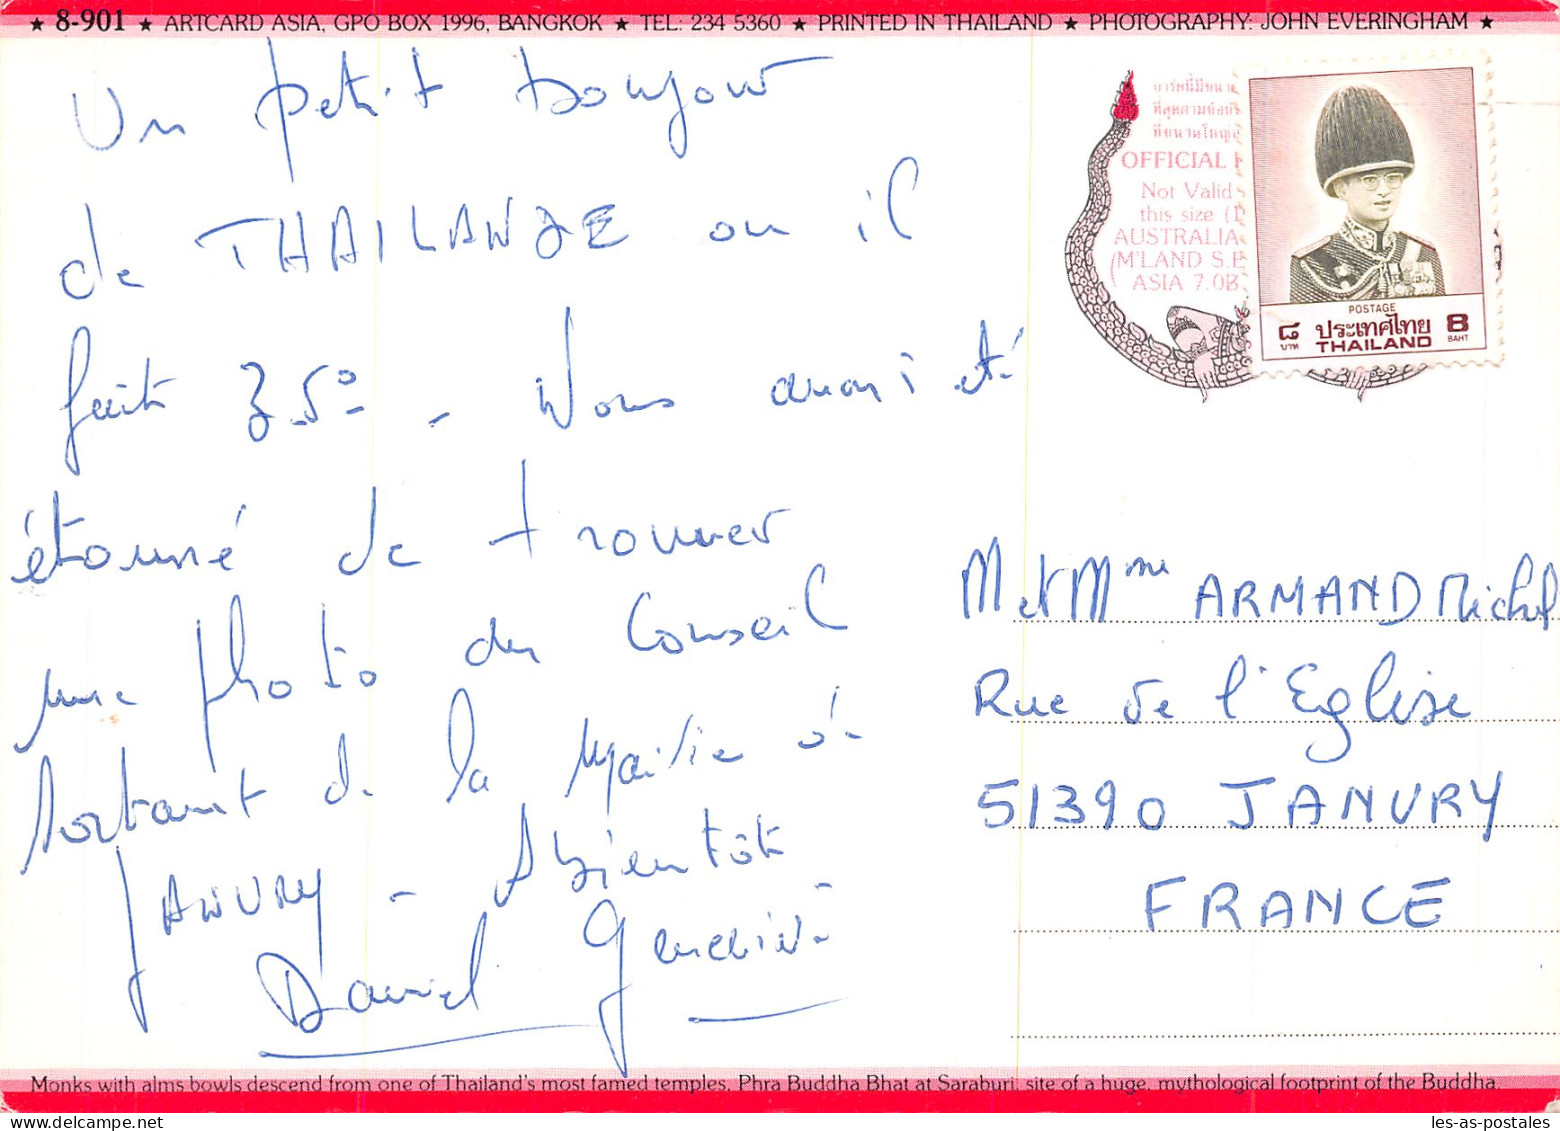 ★ 8-901 ★ ARTCARD ASIA, GPO BOX 1996, BANGKOK ★ TEL: 234 5360 ★ PRINTED IN THAILAND ★ PHOTOGRAPHY: JOHN EVERINGHAM ★
Un petit bonjour
de THAILANDE ou il
fait 35° - Nous avons été
étonné de trouver
une photo du Conseil
sortant de la Mairie de
JANVRY - A bientôt
Daniel Geneviève
OFFICIAL
Not Valid
this size
AUSTRALIA
(M'LAND S.E
ASIA 7.0B
POSTAGE
๘ บาท ประเทศไทย 8 BAHT
THAILAND
M et Mme ARMAND Michel
Rue de l'Eglise
51390 JANVRY
FRANCE
Monks with alms bowls descend from one of Thailand's most famed temples, Phra Buddha Bhat at Saraburi, site of a huge, mythological footprint of the Buddha.
les-as-postales